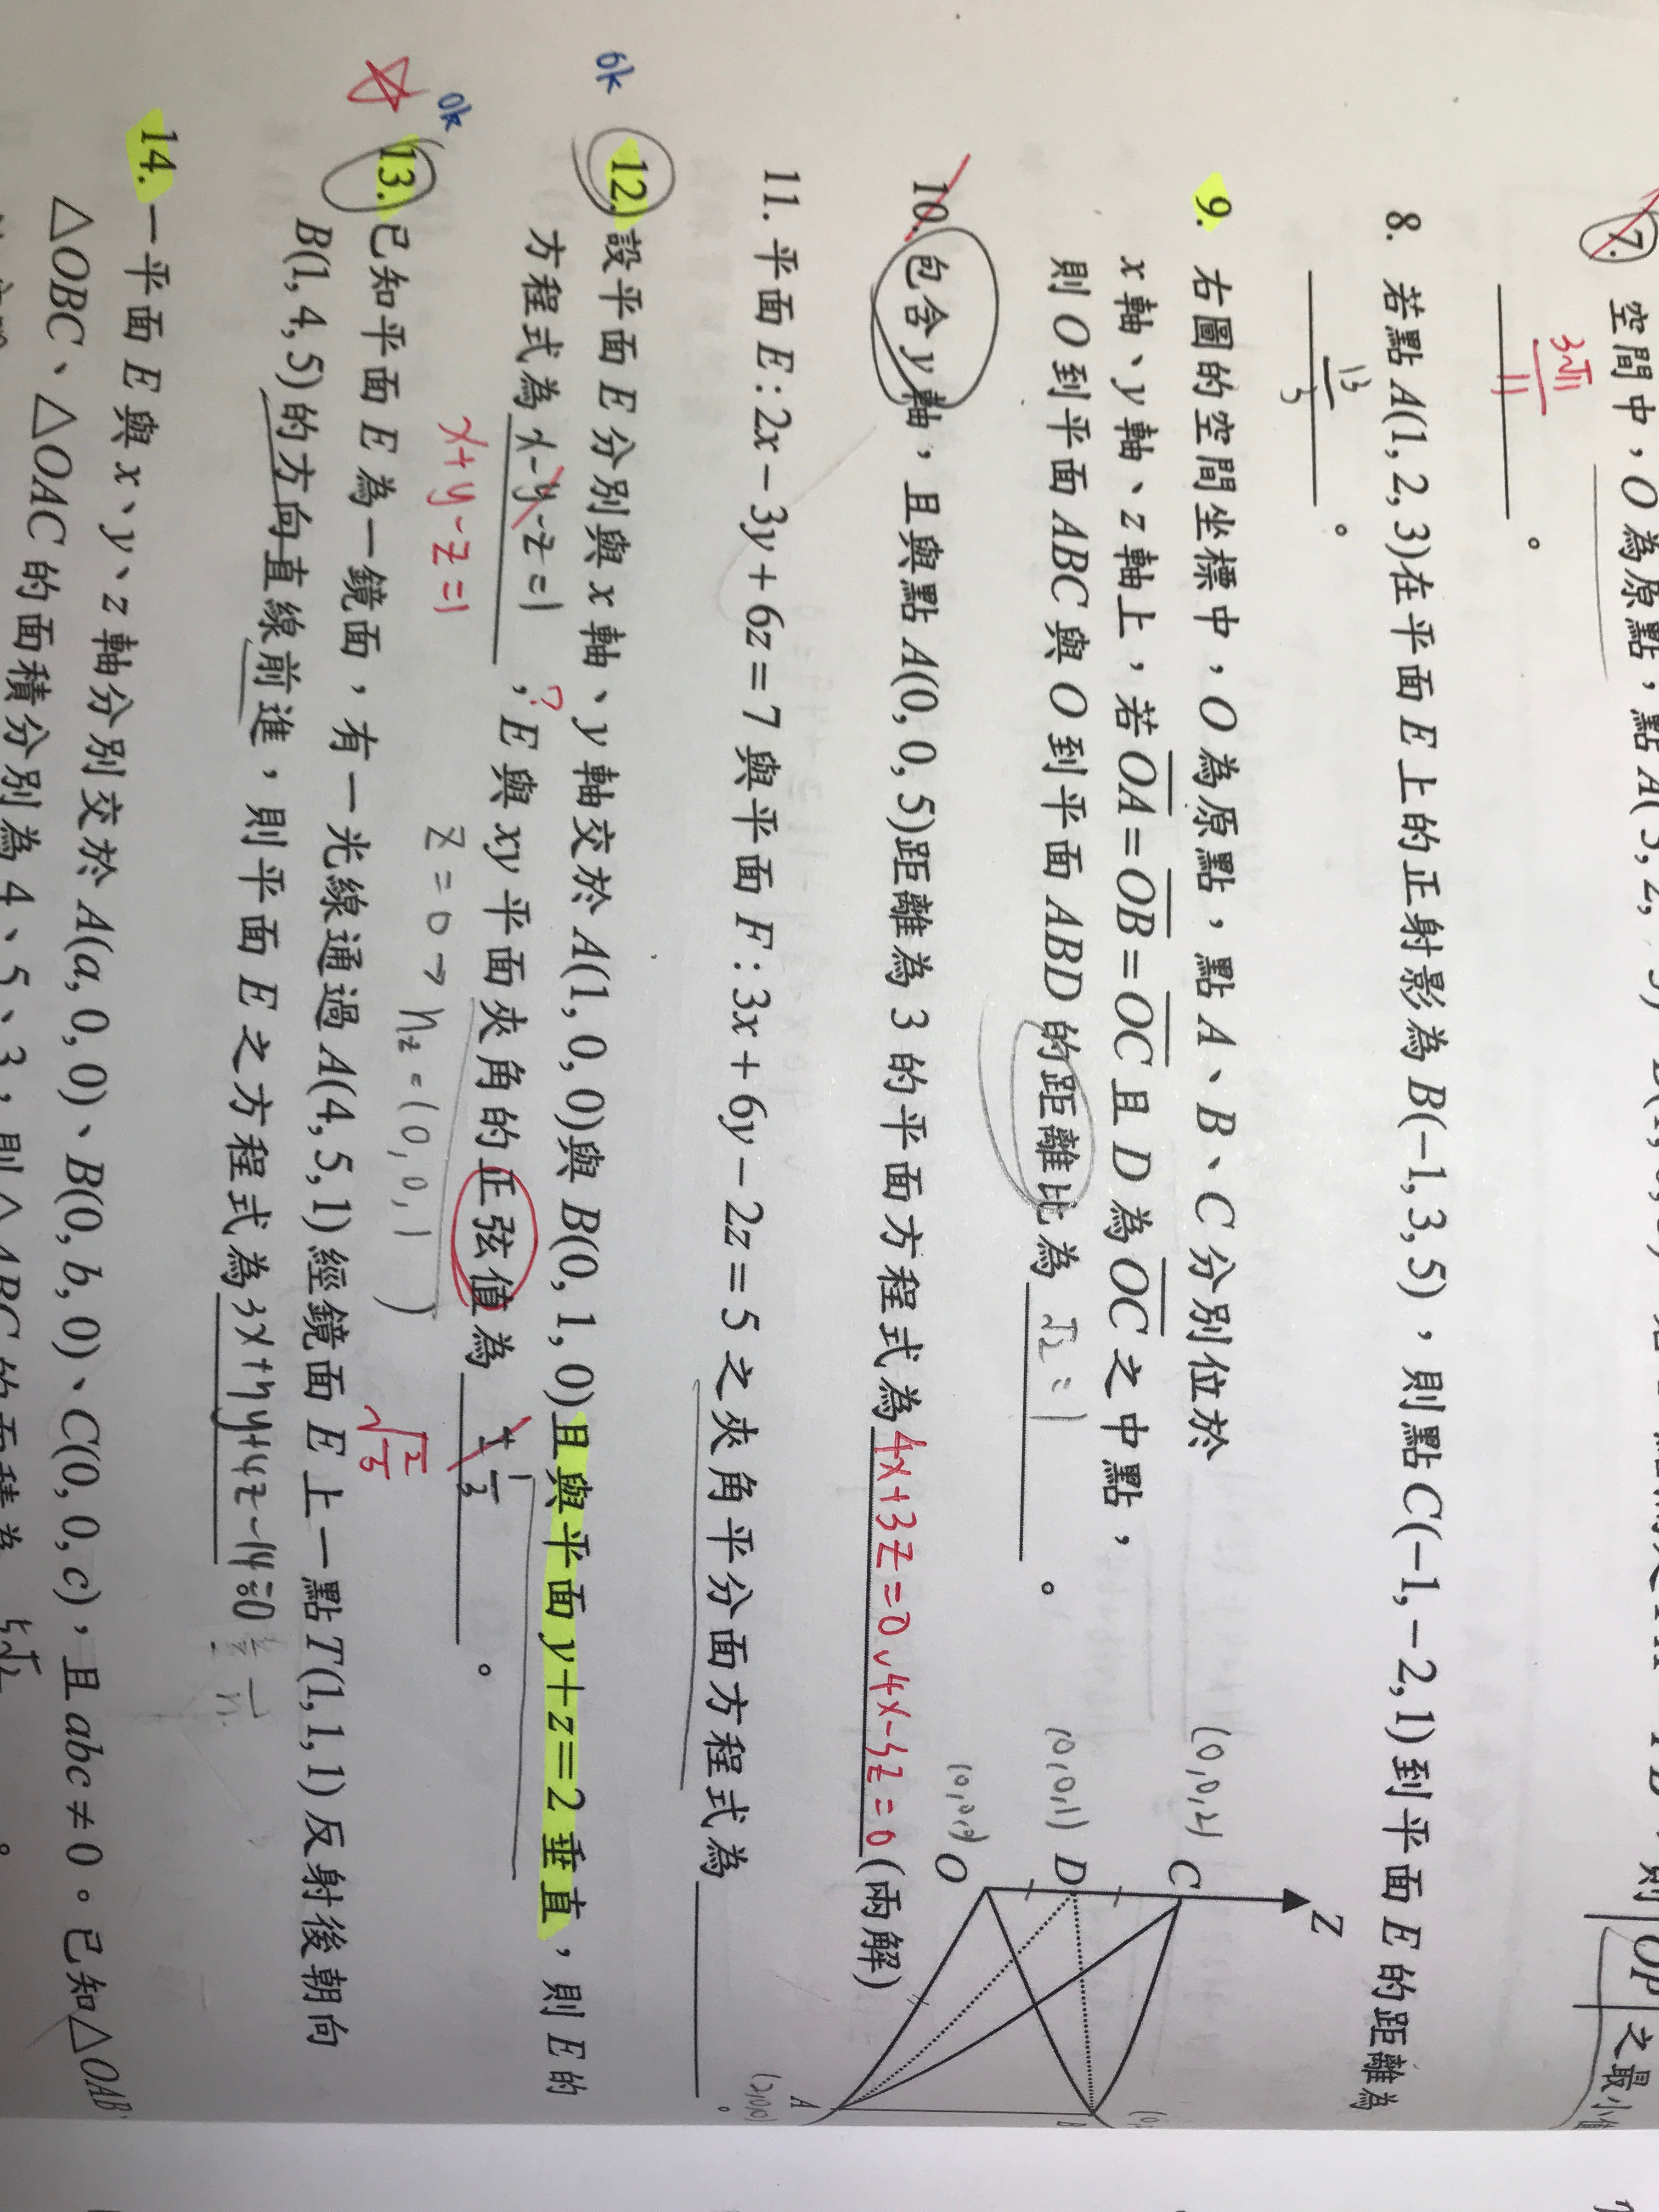 7. 空間中，O 為原點，點 A(
3√11
11
。
8. 若點 A(1, 2, 3)在平面 E 上的正射影為 B(−1, 3, 5)，則點 C(−1, −2, 1)到平面 E 的距離為
13
3
。
9. 右圖的空間坐標中，O 為原點，點 A、B、C 分別位於
x 軸、y 軸、z 軸上，若 OA = OB = OC 且 D 為 OC 之中點，
則 O 到平面 ABC 與 O 到平面 ABD 的距離比為 √2 : 1 。
z
C
(0,0,2)
D
(0,0,1)
O
A
(2,0,0)
B
10. 包含 y 軸，且與點 A(0, 0, 5)距離為 3 的平面方程式為 4x+3z=0 ∨ 4x-3z=0 (兩解)
11. 平面 E : 2x − 3y + 6z = 7 與平面 F : 3x + 6y − 2z = 5 之夾角平分面方程式為 。
ok
12. 設平面 E 分別與 x 軸、y 軸交於 A(1, 0, 0)與 B(0, 1, 0)且與平面 y + z = 2 垂直，則 E 的
方程式為 x-y-z=1 ，E 與 xy 平面夾角的正弦值為 ±1/3 。
x+y-z=1
?
z=0 → n₂=(0,0,1)
√2/3
ok
13. 已知平面 E 為一鏡面，有一光線通過 A(4, 5, 1)經鏡面 E 上一點 T(1, 1, 1)反射後朝向
B(1, 4, 5)的方向直線前進，則平面 E 之方程式為 3x+7y+4z-14=0
14. 一平面 E 與 x、y、z 軸分別交於 A(a, 0, 0)、B(0, b, 0)、C(0, 0, c)，且 abc ≠ 0。已知△OAB、
△OBC、△OAC 的面積分別為 4、5、3，則△ABC 的面積為 5√2 。